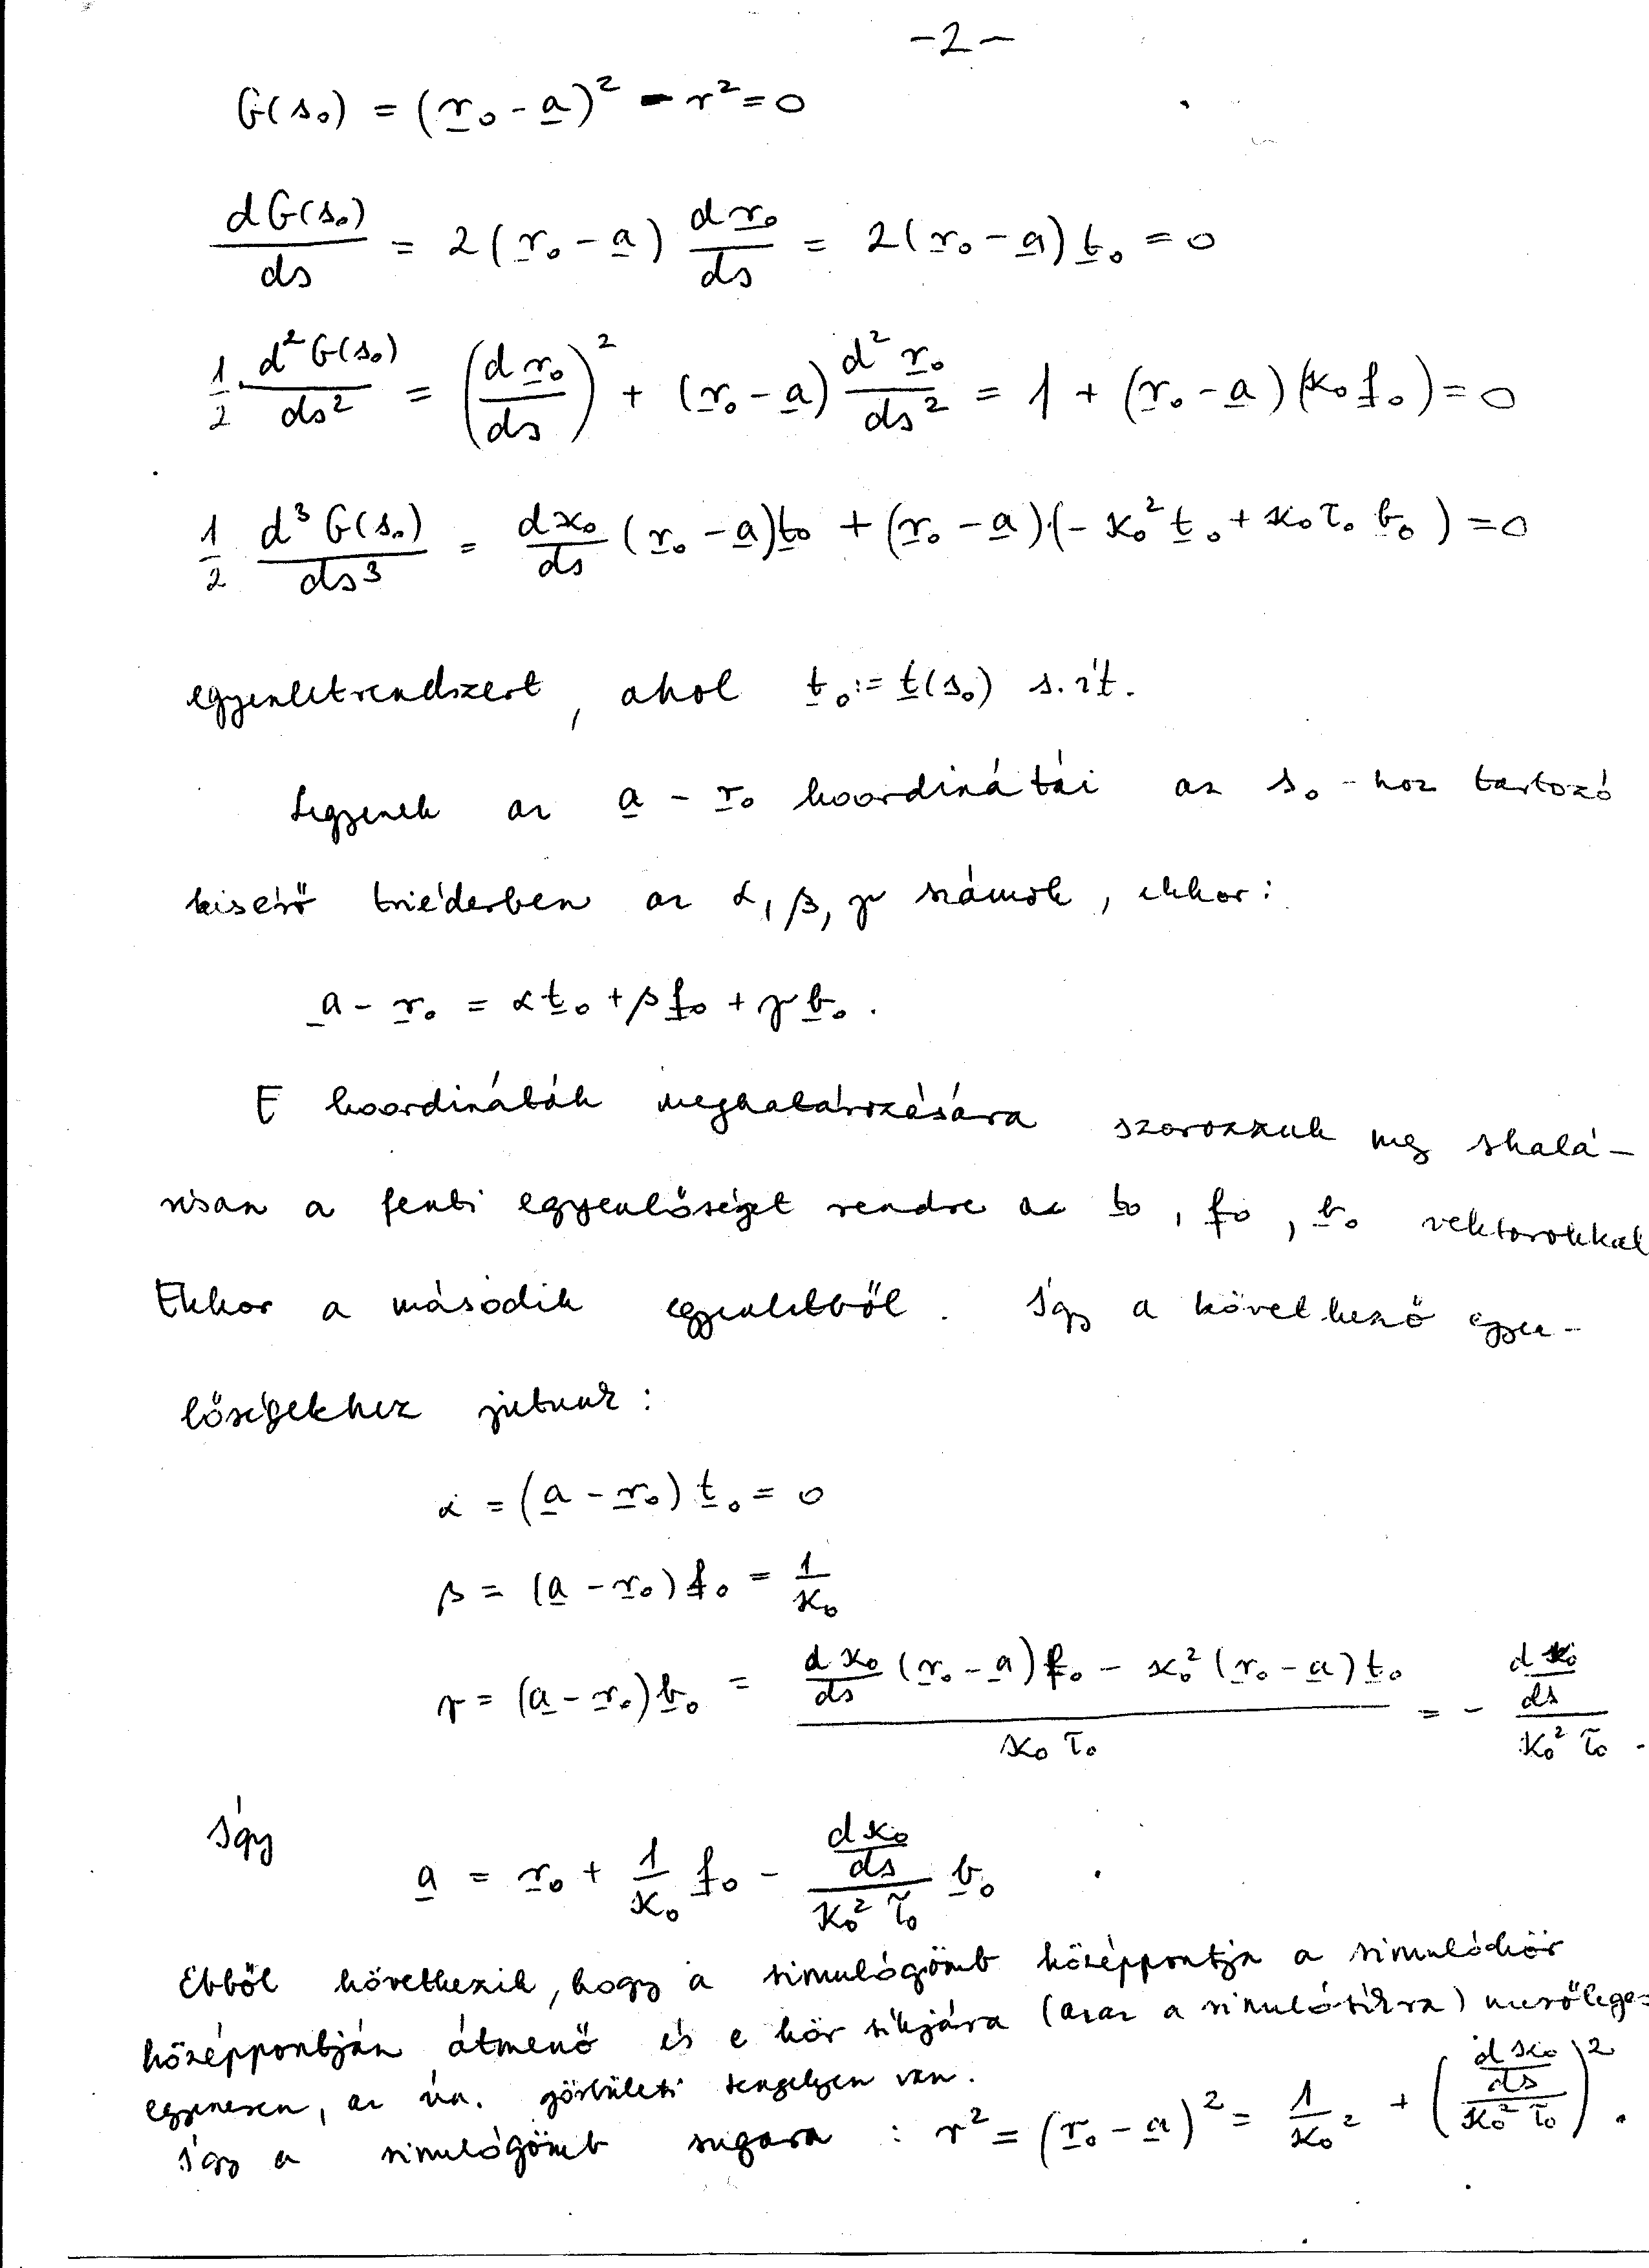 -2-
G(s₀) = (r̲₀ - a̲)² - r² = 0
dG(s₀)/ds = 2(r̲₀ - a̲) dr̲₀/ds = 2(r̲₀ - a̲) t̲₀ = 0
1/2 d²G(s₀)/ds² = (dr̲₀/ds)² + (r̲₀ - a̲) d²r̲₀/ds² = 1 + (r̲₀ - a̲)(ϰ₀ f̲₀) = 0
1/2 d³G(s₀)/ds³ = dϰ₀/ds (r̲₀ - a̲) t̲₀ + (r̲₀ - a̲)·(-ϰ₀² t̲₀ + ϰ₀ τ₀ b̲₀) = 0
egyenletrendszert, ahol t̲₀ := t̲(s₀) s.í.t.
Legyenek az a̲ - r̲₀ koordinátái az s₀-hoz tartozó
kisérő triéderben az α, β, γ számok, ekkor:
a̲ - r̲₀ = α t̲₀ + β f̲₀ + γ b̲₀.
E koordináták meghatározására szorozzuk meg skalá-
risan a fenti egyenlőséget rendre az t̲₀, f̲₀, b̲₀ vektorokkal
Ekkor a második egyenletből. Így a következő egyen-
lőségekhez jutunk:
α = (a̲ - r̲₀) t̲₀ = 0
β = (a̲ - r̲₀) f̲₀ = 1/ϰ₀
γ = (a̲ - r̲₀) b̲₀ = (dϰ₀/ds (r̲₀ - a̲) f̲₀ - ϰ₀² (r̲₀ - a̲) t̲₀)/(ϰ₀ τ₀) = - (dϰ₀/ds)/(ϰ₀² τ₀).
Így
a̲ = r̲₀ + 1/ϰ₀ f̲₀ - (dϰ₀/ds)/(ϰ₀² τ₀) b̲₀.
Ebből következik, hogy a simulógömb középpontja a simulókör
középpontján átmenő és e kör síkjára (azaz a simulósíkra) merőleges
egyenesen, az ún. görbületi tengelyen van.
Így a simulógömb sugara: r² = (r̲₀ - a̲)² = 1/ϰ₀² + ((dϰ₀/ds)/(ϰ₀² τ₀))².